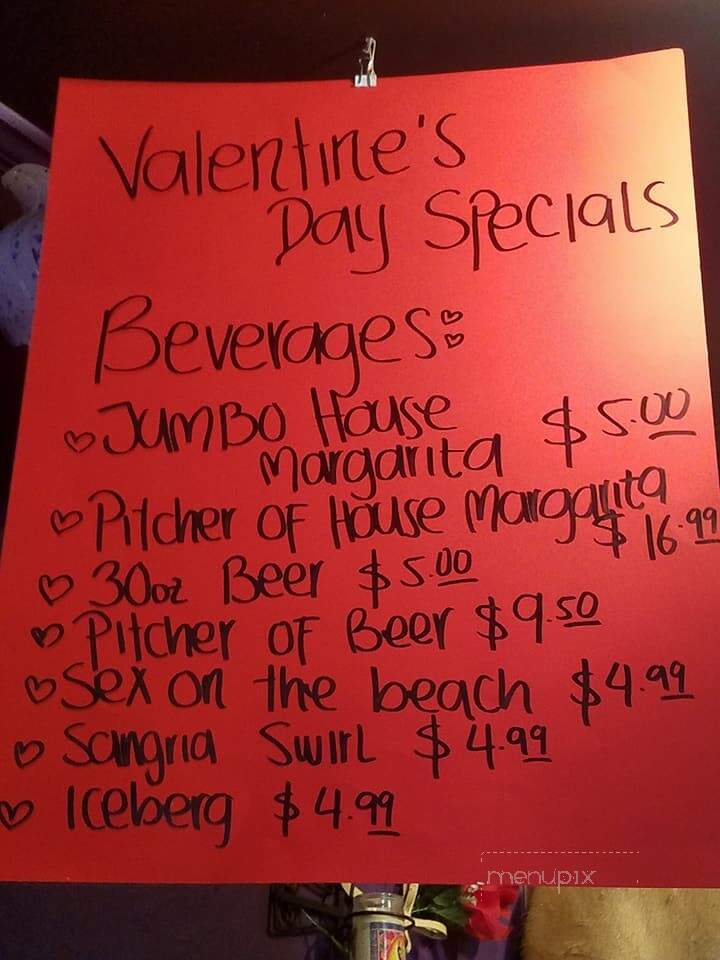 Valentine's
Day Specials
Beverages:
Jumbo House $5.00
Margarita
Pitcher of House Margarita
$16.99
30oz Beer $5.00
Pitcher of Beer $9.50
Sex on the beach $4.99
Sangria Swirl $4.99
Iceberg $4.99
menupix